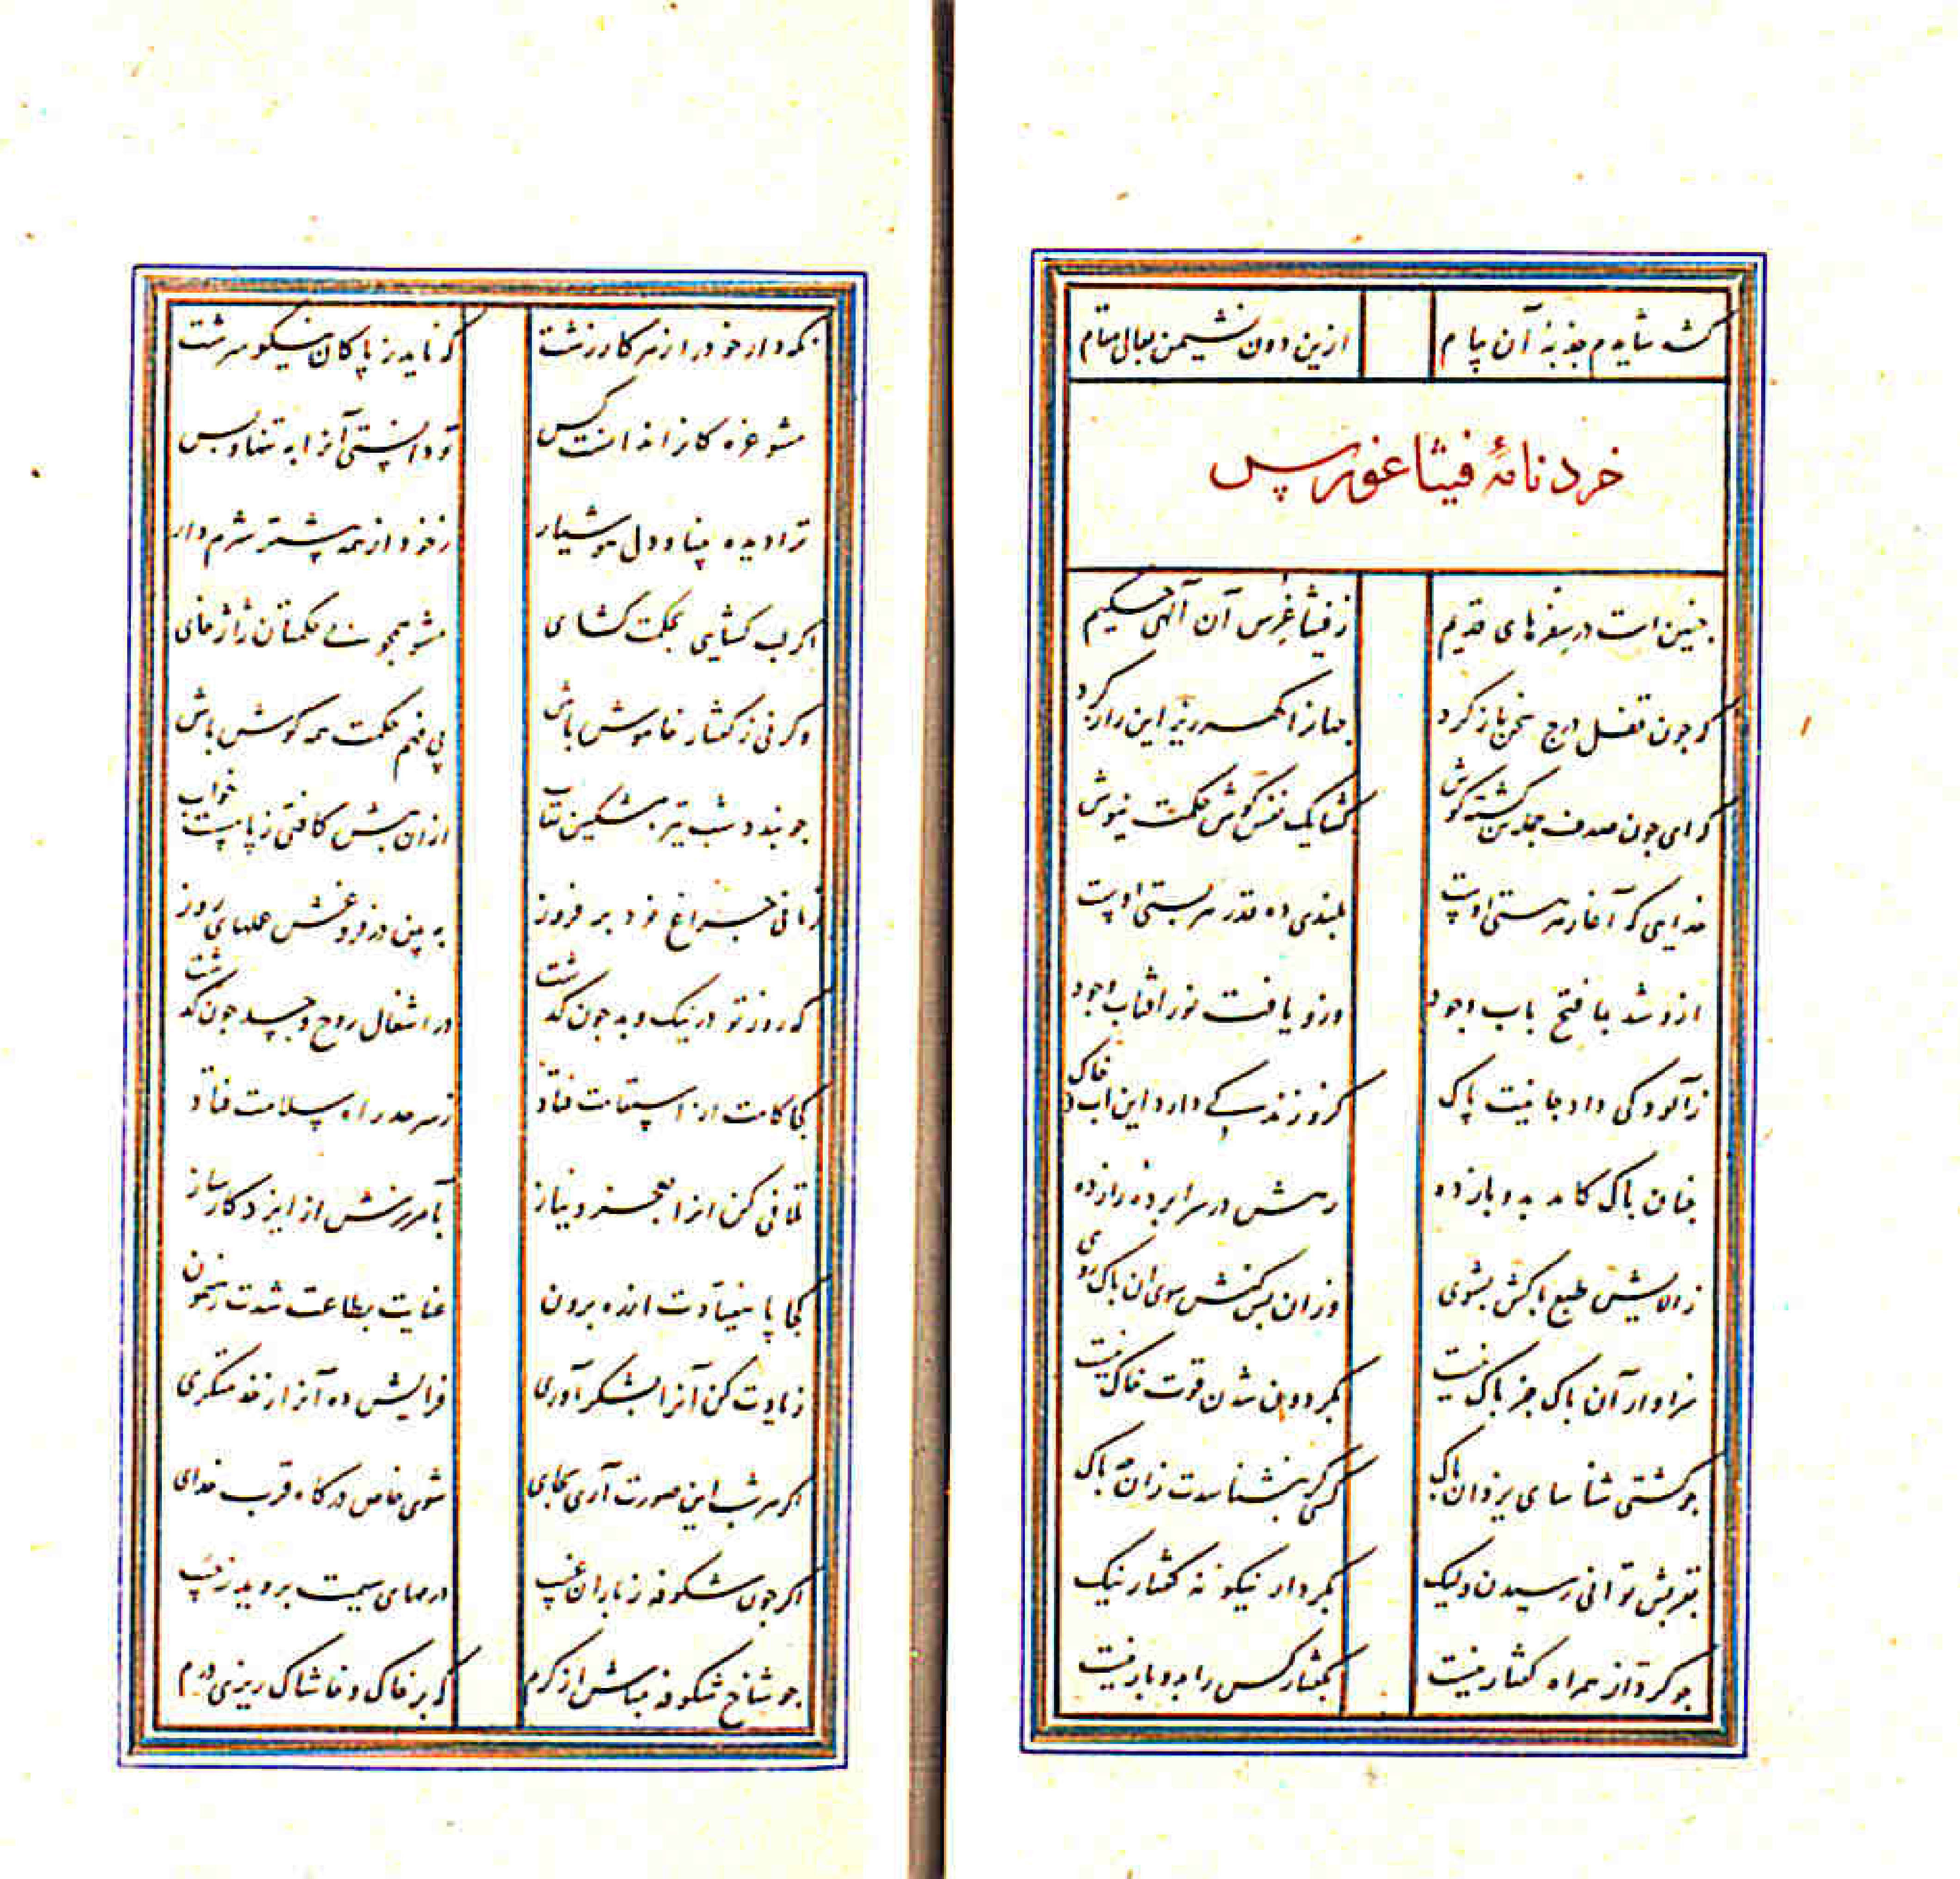 کشد شایدم جذبهٔ آن پیام ازین دون نشیمن بعالی مقام
خردنامهٔ فیثاغورس
چنین است در سفرهای قدیم ز فیثاغرس آن الهی حکیم
که چون قفل درج سخن باز کرد جهانرا گهرریز این راز کرد
که ای چون صدف جمله تن گشته گوش گشا یک نفس گوش حکمت نیوش
خدایی که آغاز هر هستی اوست بلندی ده قدر هر پستی اوست
ازو شد بپا فتح باب وجود وزو یافت نور آفتاب وجود
ز آلودگی داد جانیت پاک کزو زندگی دارد این آب و خاک
چنان پاک کامد بدو باز ده رهش در سراپرده راز ده
ز آلایش طبع پاکش بشوی وزان پس کنش سوی آن پاک روی
سزاوار آن پاک جز پاک نیست بگردون شدن قوت خاک نیست
چو گشتی شناسای یزدان پاک کسی گر بنشناسدت زان چه باک
بقربش توانی رسیدن ولیک بکردار نیکو نه گفتار نیک
چو کردار همراه گفتار نیست بگفتار کس را بدو بار نیست
نگه دار خود را ز هر کار زشت که ناید ز پاکان نیکو سرشت
مشو غره کانرا ندانست کس تو دانستی آنرا به تنها و بس
ترا دیده بینا و دل هوشیار ز خود از همه پیشتر شرم دار
اگر لب گشایی بحکمت گشای مشو همچو بی حکمتان ژاژخای
وگرنی ز گفتار خاموش باش پی فهم حکمت همه گوش باش
چو بندد شب تیره مشکین نقاب ازان پیش کافتی ز پا مست خواب
زمانی چراغ خرد بر فروز به بین در فروغش عملهای روز
که روز تو در نیک و بد چون گذشت در اشغال روح و جسد چون گذشت
کجا گامت از استقامت فتاد ز سر حد راه سلامت فتاد
تلافی کن آنرا بعجز و نیاز بآمرزش از ایزد کارساز
کجا پا نیفتادت از ره برون عنایت بطاعت شدت رهنمون
زیادت کن آنرا بشکر آوری فزایش ده آنرا ز خدمتگری
اگر هر شب این صورت آری بجای شوی خاص درگاه قرب خدای
اگر چون شکوفه ز باران غیب درمهای سیمت بروید ز جیب
چو شاخ شکوفه مباش از کرم که بر خاک و خاشاک ریزی درم